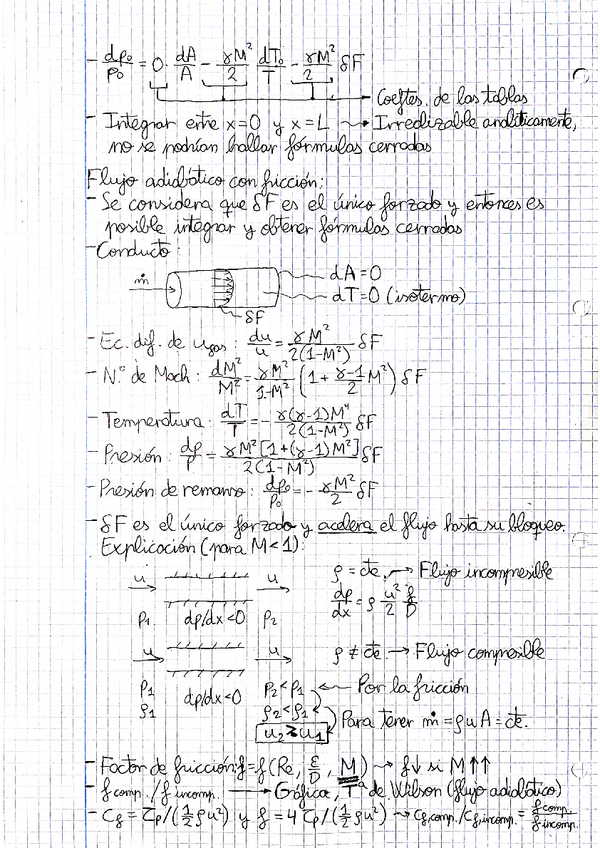 - dp₀/p₀ = 0·dA/A - γM²/2 dT₀/T - γM²/2 δF
Coeftes. de las tablas
- Integrar entre x=0 y x=L ⟿ Irrealizable analíticamente,
no se podrían hallar fórmulas cerradas
Flujo adiabático con fricción:
- Se considera que δF es el único forzado y entonces es
posible integrar y obtener fórmulas cerradas
- Conducto
ṁ
dA=0
dT=0 (isotermo)
δF
- Ec. dif. de ugas: du/u = γM²/2(1-M²) δF
- N.º de Mach: dM²/M² = γM²/1-M² (1 + γ-1/2 M²) δF
- Temperatura: dT/T = - γ(γ-1)M⁴/2(1-M²) δF
- Presión: dp/p = γM²[1+(γ-1)M²]/2(1-M²) δF
- Presión de remanso: dp₀/p₀ = - γM²/2 δF
- δF es el único forzado y acelera el flujo hasta su bloqueo.
Explicación (para M<1):
u u ρ = cte. → Flujo incompresible
p₁ dp/dx<0 p₂ dp/dx = ρ u²/2 f/D
u u ρ ≠ cte. → Flujo compresible
p₁ dp/dx<0 p₂<p₁ ← Por la fricción
ρ₁ ρ₂<ρ₁
u₂>u₁ Para tener ṁ = ρuA = cte.
- Factor de fricción: f=f(Re, ε/D, M) ⟿ f↓ si M↑↑
- f comp./f incomp. → Gráfica, Tª de Wilson (flujo adiabático)
- Cf = τp/(½ρu²) y f = 4τp/(½ρu²) ⟿ Cf,comp./Cf,incomp. = f comp./f incomp.